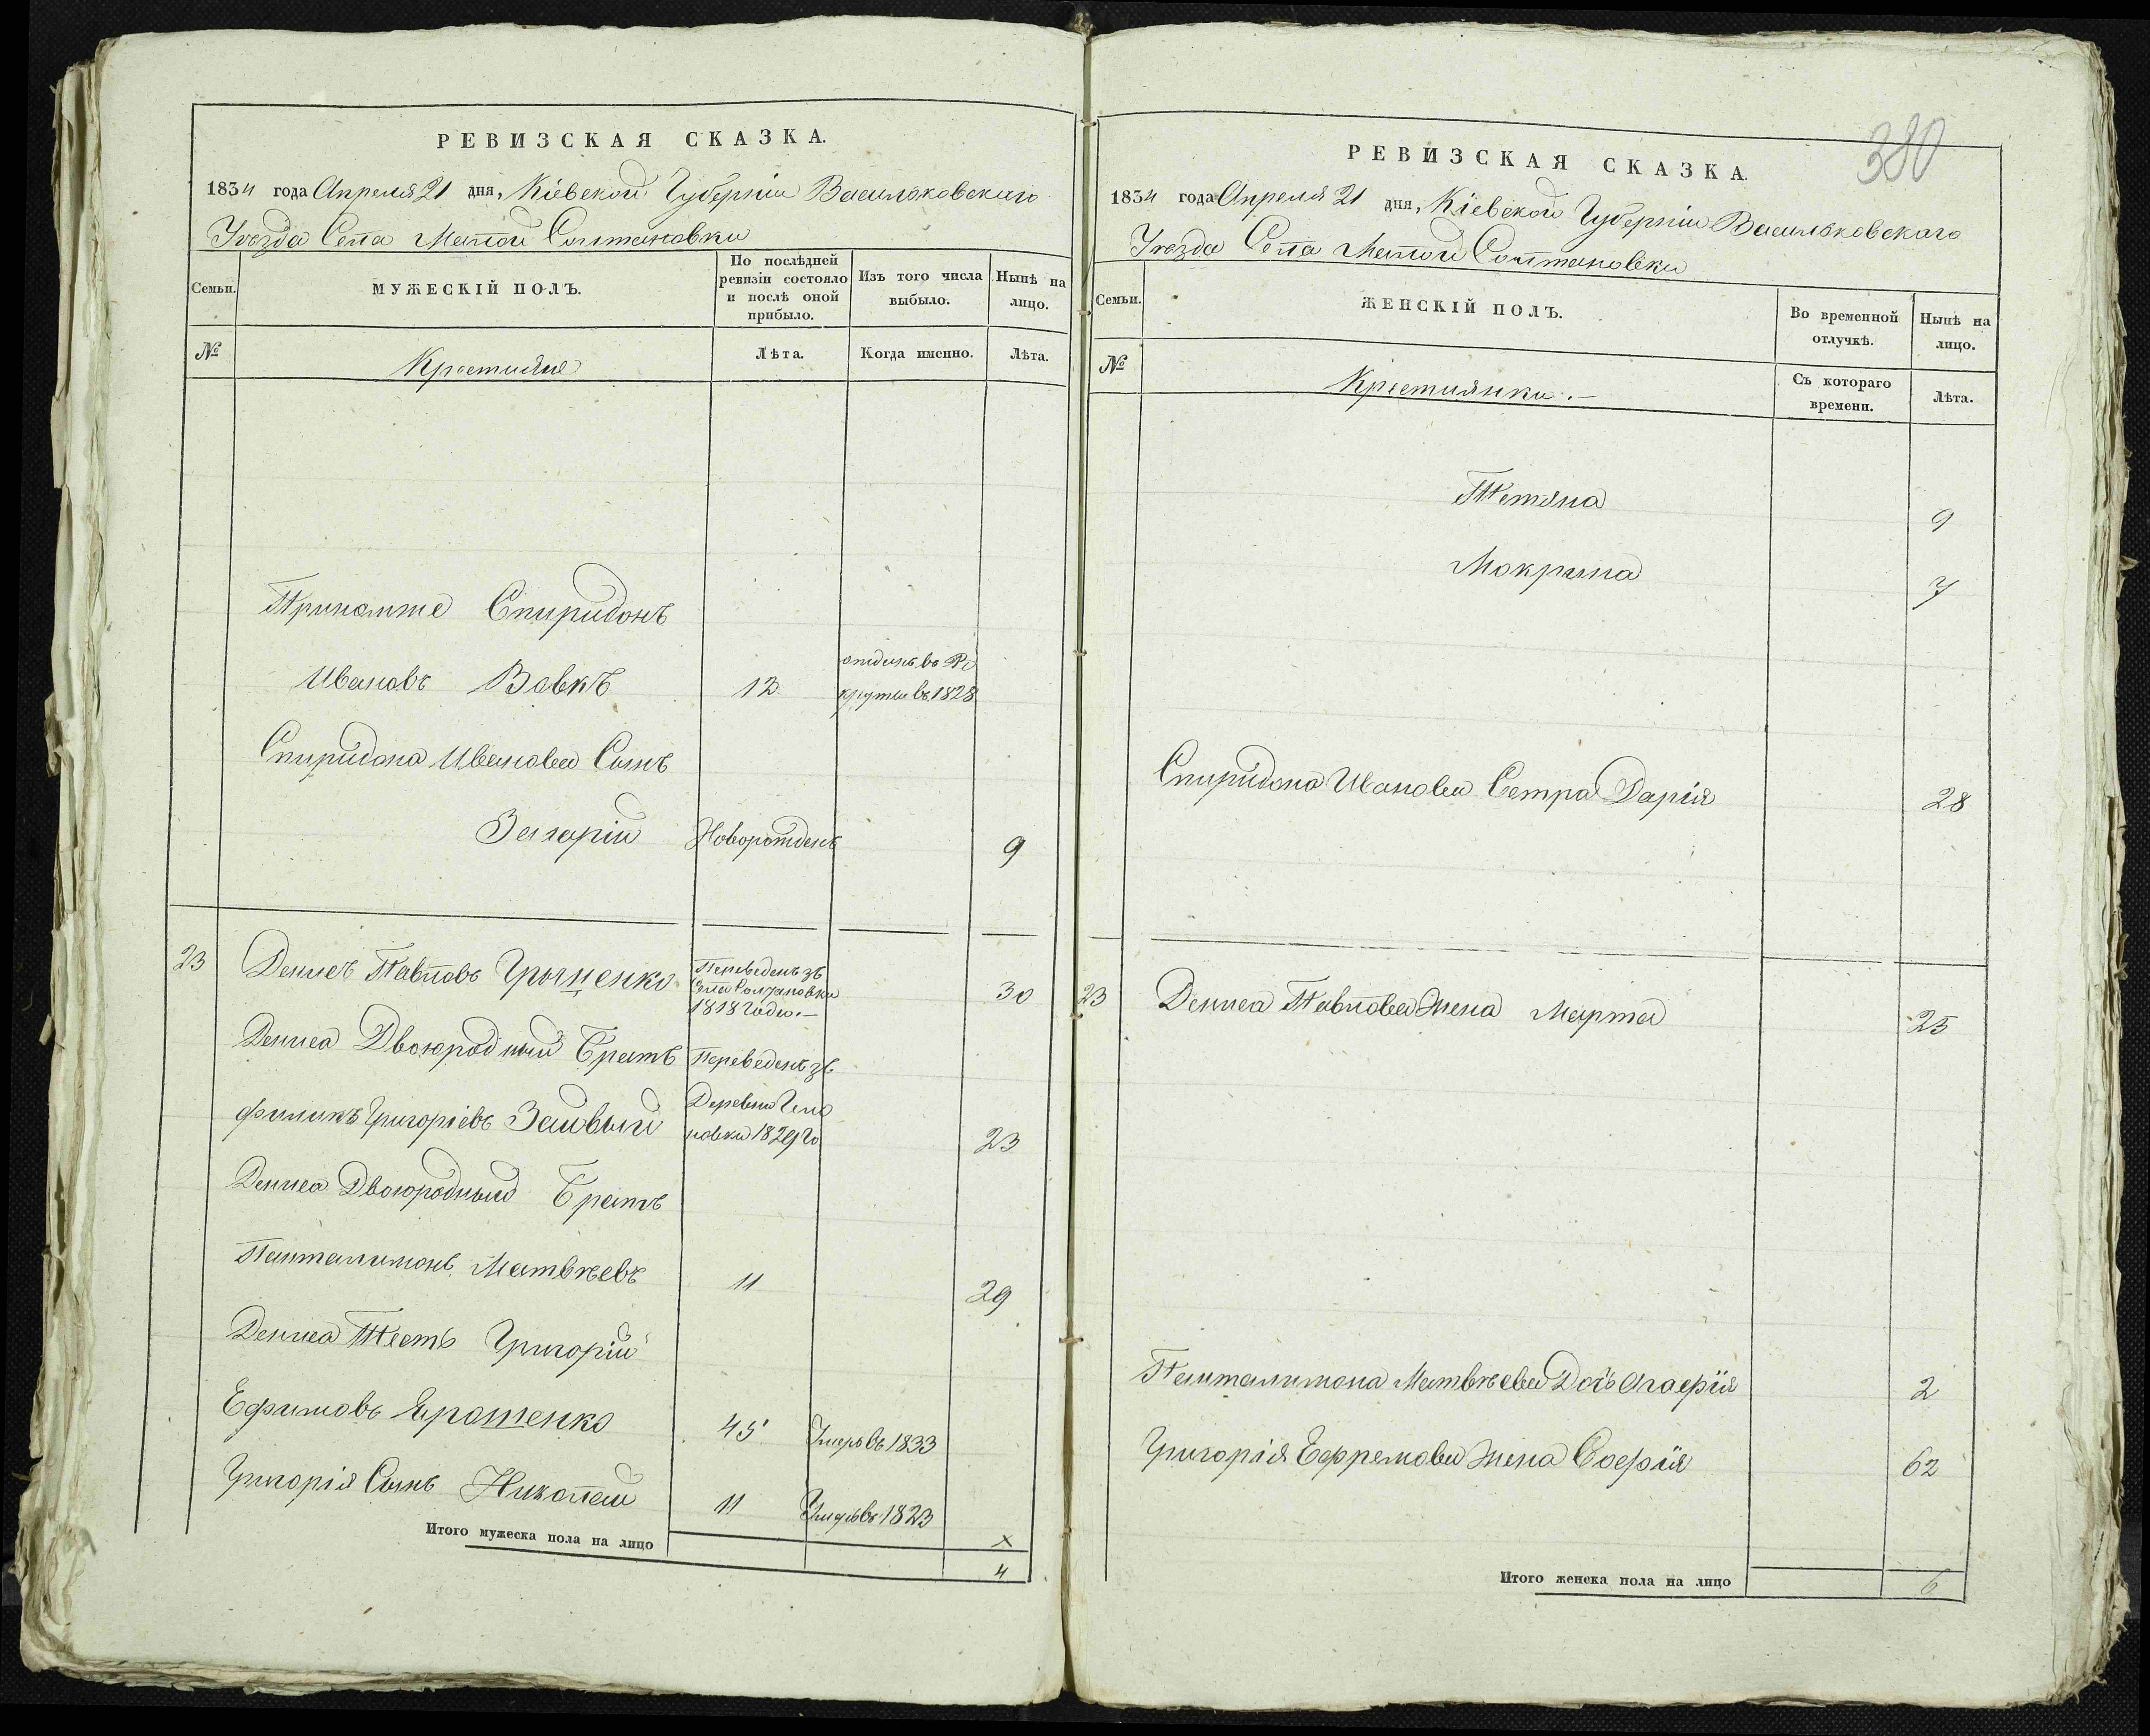 РЕВИЗСКАЯ СКАЗКА.
1834 года Апреля 21 дня, Кіевской Губерніи Васильковскаго
Уѣзда Села Малой Солтановки
Семьи.
МУЖЕСКІЙ ПОЛЪ.
По послѣдней ревизіи состояло и послѣ оной прибыло.
Изъ того числа выбыло.
Нынѣ на лицо.
№
Крестияне
Лѣта.
Когда именно.
Лѣта.
Спиридонъ
Ивановъ Вовкъ 12 отданъ въ Ре
круты въ 1828
Спиридона Иванова Сынъ
Захарій Новорожденъ 9
23 Денисъ Павловъ Грыценко Переведенъ зъ
Села Солтановки
1818 года.— 30
Дениса Двоюродный Братъ Переведенъ зъ
Деревни
Филипъ Григоріевъ 1829 го 23
Дениса Двоюродный Братъ
Панталимонъ Матвѣевъ 11 29
Дениса Тесть Григорій
Ефимовъ Ярошенко 45 Умеръ въ 1833
Григорія Сынъ Николай 11 Умеръ въ 1823
Итого мужеска пола на лицо ×
4
380
РЕВИЗСКАЯ СКАЗКА.
1834 года Апреля 21 дня, Кіевской Губерніи Васильковскаго
Уѣзда Села Малой Солтановки
Семьи.
ЖЕНСКІЙ ПОЛЪ.
Во временной отлучкѣ.
Нынѣ на лицо.
№
Крестиянки.—
Съ котораго времени.
Лѣта.
Тетяна 9
Мокрына 7
Спиридона Иванова Сетра Дарія 28
23 Дениса Павлова Жена Марта 25
Панталимона Матвѣева Дочь Агафія 2
Григорія Ефремова Жена Софія 62
Итого женска пола на лицо 6